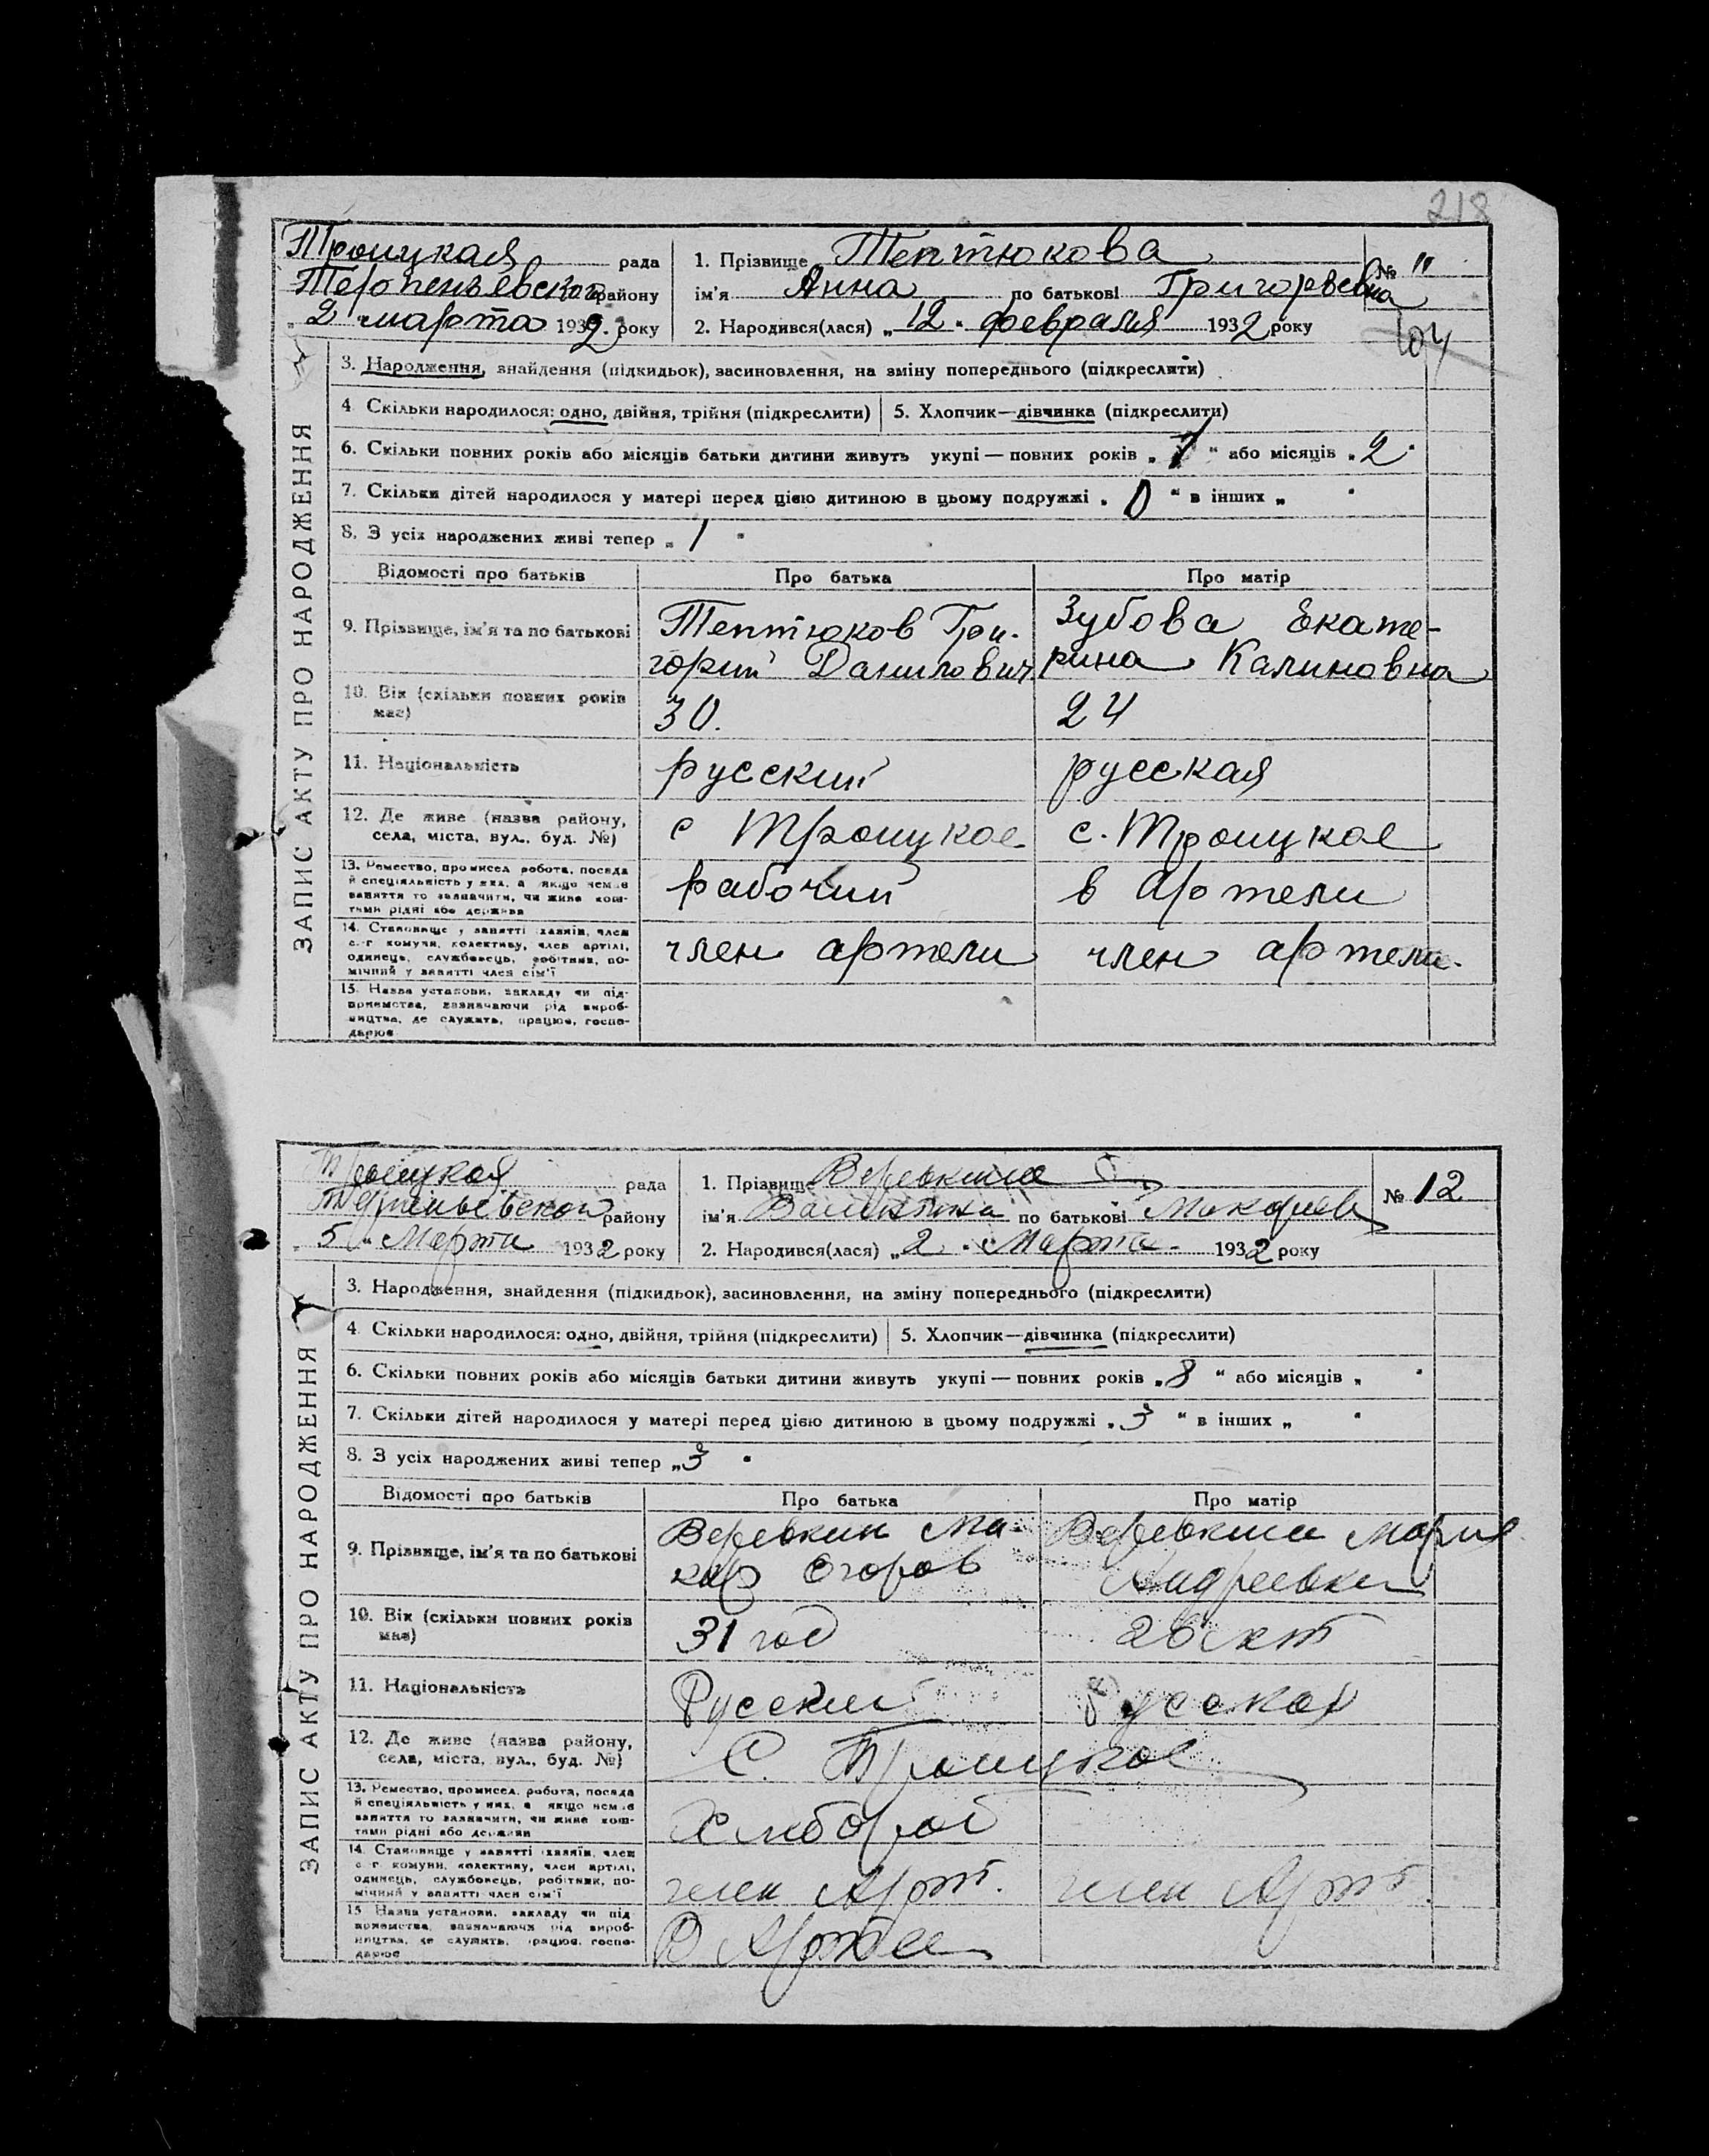 218
Троицкая рада
Терпеньевского району
"2" марта 1932 року
1. Прізвище Тептюкова
№ 11
ім'я Анна по батькові Григорьевна
2. Народився(лася) „12" февраля 1932 року
104
ЗАПИС АКТУ ПРО НАРОДЖЕННЯ
3. Народження, знайдення (підкидьок), засиновлення, на зміну попереднього (підкреслити)
4 Скільки народилося: одно, двійня, трійня (підкреслити) 5. Хлопчик—дівчинка (підкреслити)
6. Скільки повних років або місяців батьки дитини живуть укупі — повних років „1" або місяців „2"
7. Скільки дітей народилося у матері перед цією дитиною в цьому подружжі „0" в інших „ "
8. З усіх народжених живі тепер „1"
Відомості про батьків Про батька Про матір
9. Прізвище, ім'я та по батькові
Тептюков Гри-
горий Данилович
Зубова Екате-
рина Калиновна
10. Вік (скільки повних років
має)
30.
24
11. Національність
русский
русская
12. Де живе (назва району,
села, міста, вул., буд. №)
с Троицкое
с. Троицкое
13. Ремество, промисел, робота, посада
й спеціяльність у них, а якщо немає
заняття то зазначити, чи живе кош-
тами рідні або держави
рабочий
в артели
14. Становище у занятті: хазяїн, член
с.-г комуни, колективу, член артілі,
одинець, службовець, робітник, по-
мічний у занятті член сім'ї
член артели
член артели.
15. Назва установи, закладу чи під-
приємства, зазначаючи рід вироб-
ництва, де служить, працює, госпо-
дарює
Троицкая рада
Терпеньевской району
"5" Марта 1932 року
1. Прізвище Веревкина
№ 12
ім'я Валентина по батькові Макарьев
2. Народився(лася) „2" Марта 1932 року
ЗАПИС АКТУ ПРО НАРОДЖЕННЯ
3. Народження, знайдення (підкидьок), засиновлення, на зміну попереднього (підкреслити)
4 Скільки народилося: одно, двійня, трійня (підкреслити) 5. Хлопчик—дівчинка (підкреслити)
6. Скільки повних років або місяців батьки дитини живуть укупі — повних років „8" або місяців „ "
7. Скільки дітей народилося у матері перед цією дитиною в цьому подружжі „3" в інших „ "
8. З усіх народжених живі тепер „3"
Відомості про батьків Про батька Про матір
9. Прізвище, ім'я та по батькові
Веревкин Ма-
кар Егоров
Веревкина Мария
Андреевна
10. Вік (скільки повних років
має)
31 год
26 лет
11. Національність
Русский
Русская
12. Де живе (назва району,
села, міста, вул., буд. №)
С. Троицкое
13. Ремество, промисел, робота, посада
й спеціяльність у них, а якщо немає
заняття то зазначити, чи живе кош-
тами рідні або держави
Хлебороб
14. Становище у занятті: хазяїн, член
с.-г комуни, колективу, член артілі,
одинець, службовець, робітник, по-
мічний у занятті член сім'ї
член Арт.
член Арт.
15 Назва установи, закладу чи під-
приємства, зазначаючи рід вироб-
ництва, де служить, працює, госпо-
дарює
В Артели